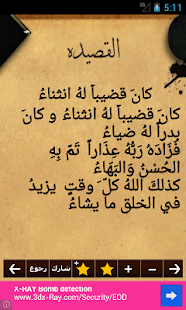 5:11
القصيده
كانَ قضيباً لهُ انثناءُ
كانَ قضيباً لهُ انثناءُ و كانَ
بدراً لهُ ضياءُ
فَزَادَهُ رَبُّهُ عِذَاراً تَمّ بِهِ
الحُسْنُ وَالبَهَاءُ
كذلكَ اللهُ كلّ َ وقتٍ يزيدُ
في الخلق ما يشاءُ
رجوع شارك
X-RAY Bomb detection
www.3dx-Ray.com/Security/EOD